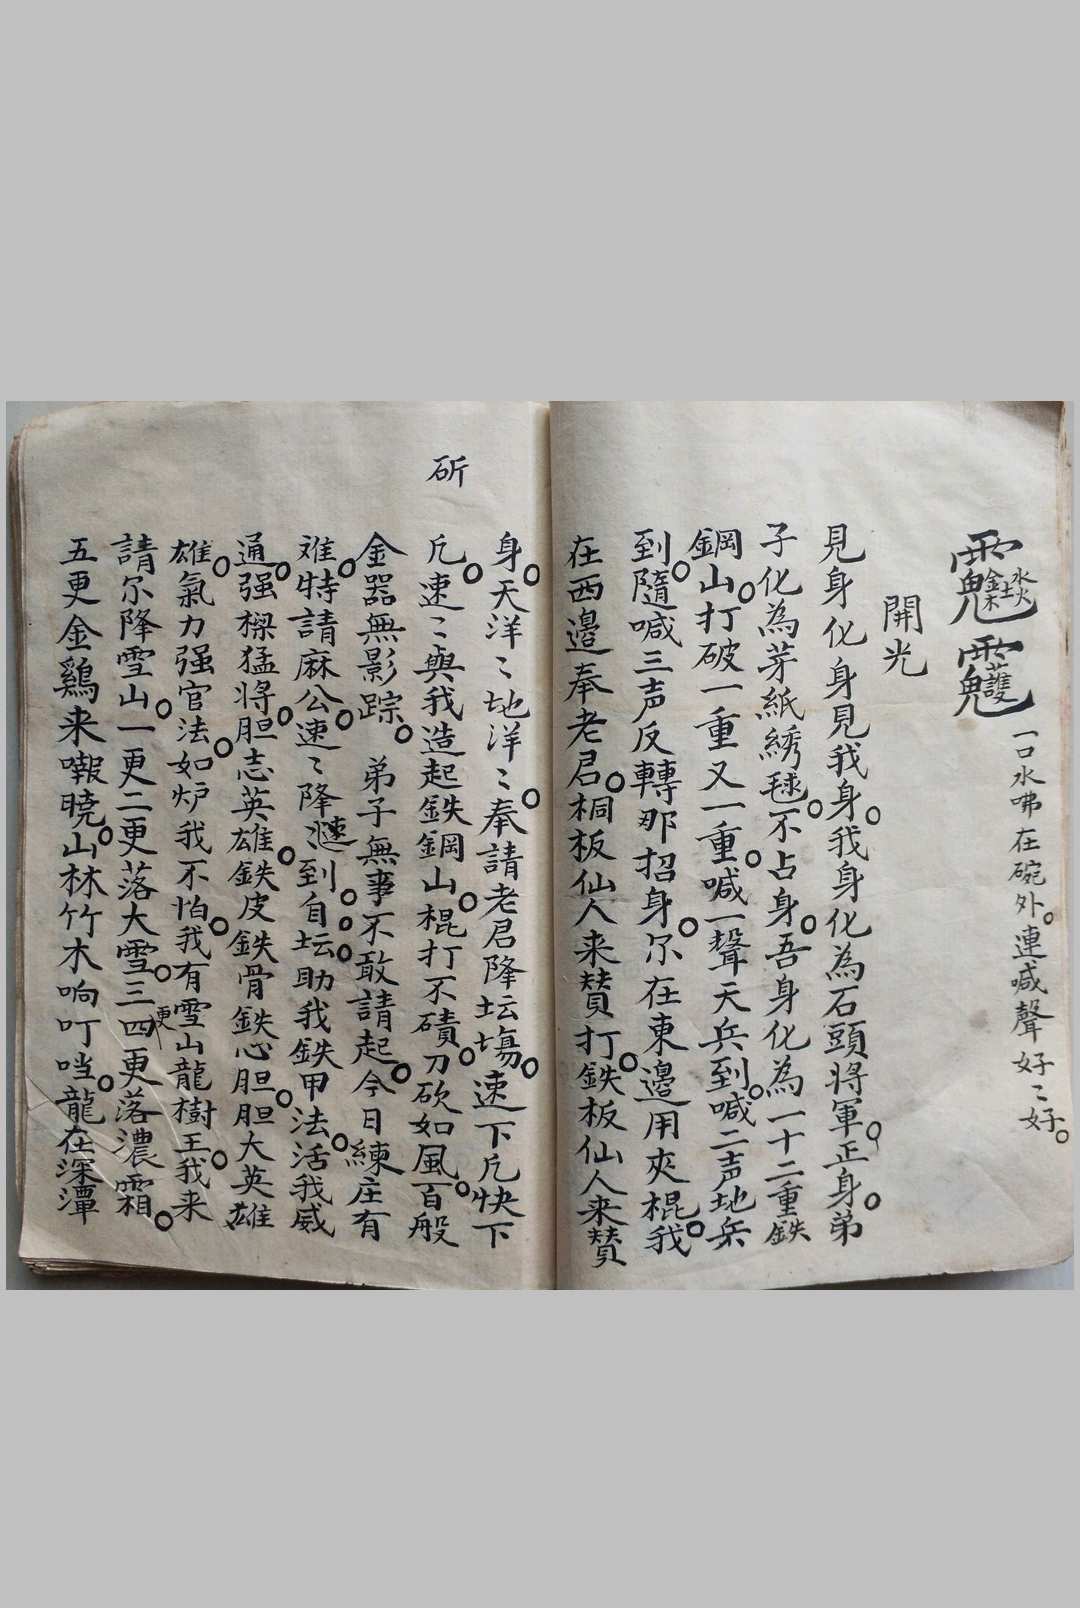 金木水火土 護 一口水咈在碗外。連喊聲好〻好。
開光
見身化身見我身。我身化為石頭將軍。正身。弟
子化為芽紙綉毬。不占身。吾身化為一十二重鉄
鋼山。打破一重又一重。喊一聲天兵到。喊二声地兵
到。隨喊三声反轉那招身。尔在東邊用夾棍。我
在西邉奉老君。桐板仙人来賛打。鉄板仙人来賛
身。天洋〻地洋〻。奉請老君降坛塲。速下凢快下
斫
凢。速〻與我造起鉄鋼山。棍打不磧。刀砍如風。百般
金器無影踪。弟子無事不敢請起。今日練庄有
难。特請麻公。速〻降速到。自坛。助我鉄甲法。活我威
通。强樑猛将。胆志英雄。鉄皮鉄骨鉄心胆。胆大英雄
雄。氣力强官法。如炉我不怕。我有雪山龍樹王。我来
請尔降雪山。一更二更落大雪。三更四更落濃霜。
五更金鷄来嘞暁。山林竹木响叮当。龍在深潭